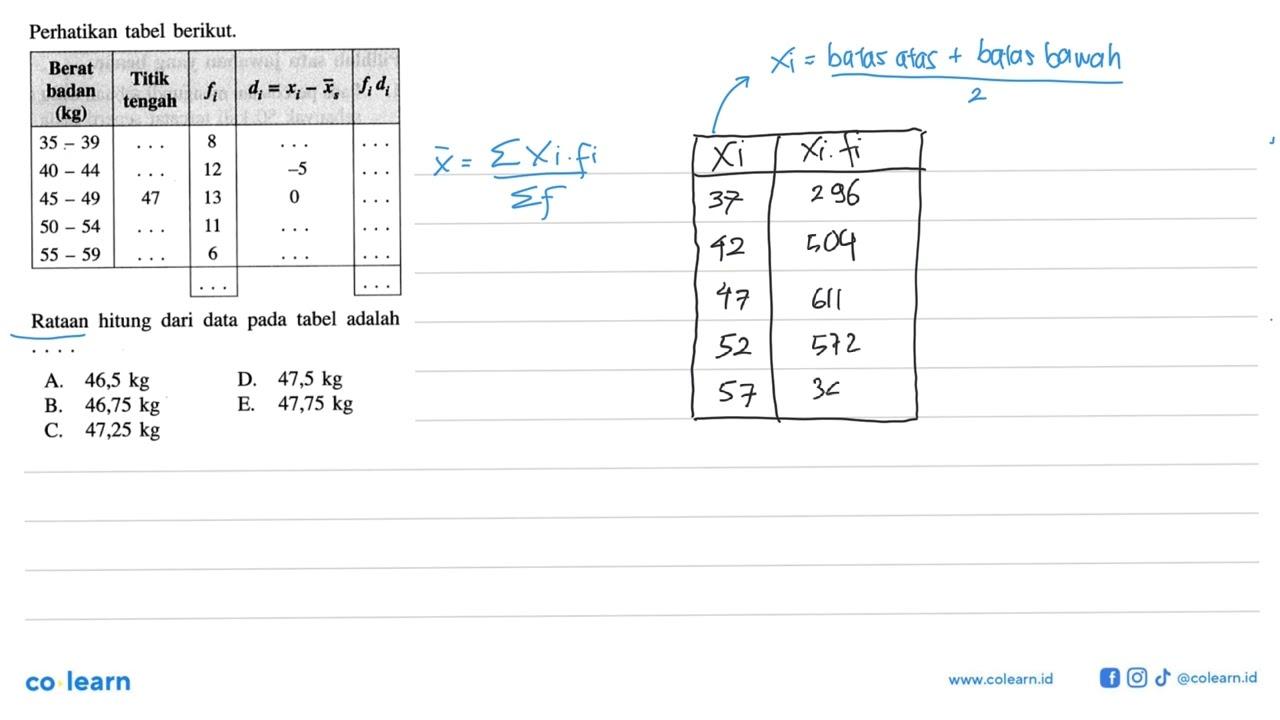 Perhatikan tabel berikut.
Berat badan (kg) Titik tengah fᵢ dᵢ = xᵢ − x̄ₛ fᵢ dᵢ
35 – 39 . . . 8 . . . . . .
40 – 44 . . . 12 –5 . . .
45 – 49 47 13 0 . . .
50 – 54 . . . 11 . . . . . .
55 – 59 . . . 6 . . . . . .
. . . . . .
Rataan hitung dari data pada tabel adalah
. . . .
A. 46,5 kg D. 47,5 kg
B. 46,75 kg E. 47,75 kg
C. 47,25 kg
x̄ = Σ Xi . fi / Σf
Xi = batas atas + batas bawah / 2
Xi Xi . fi
37 296
42 504
47 611
52 572
57 3
co learn
www.colearn.id @colearn.id